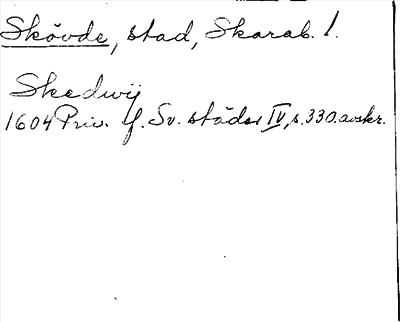 Skövde, stad, Skarab. l.
Skedwij
1604 Priv. f. Sv. städer IV, s. 330. avskr.